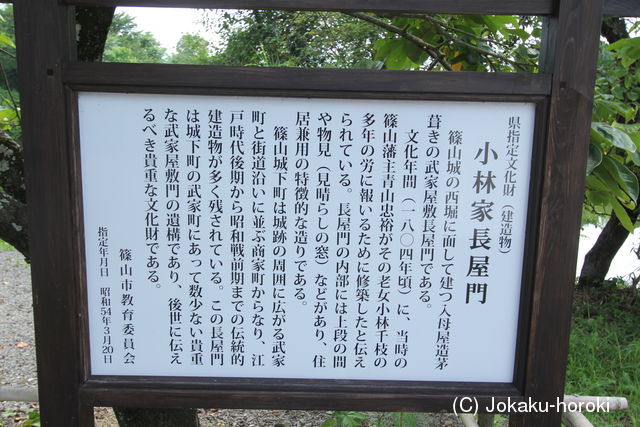 県指定文化財（建造物）
小林家長屋門
篠山城の西堀に面して建つ入母屋造茅
葺きの武家屋敷長屋門である。
文化年間（一八〇四年頃）に、当時の
篠山藩主青山忠裕がその老女小林千枝の
多年の労に報いるために修築したと伝え
られている。長屋門の内部には上段の間
や物見（見晴らしの窓）などがあり、住
居兼用の特徴的な造りである。
篠山城下町は城跡の周囲に広がる武家
町と街道沿いに並ぶ商家町からなり、江
戸時代後期から昭和戦前期までの伝統的
建造物が多く残されている。この長屋門
は城下町の武家町にあって数少ない貴重
な武家屋敷門の遺構であり、後世に伝え
るべき貴重な文化財である。
篠山市教育委員会
指定年月日 昭和54年3月20日
(C) Jokaku-horoki